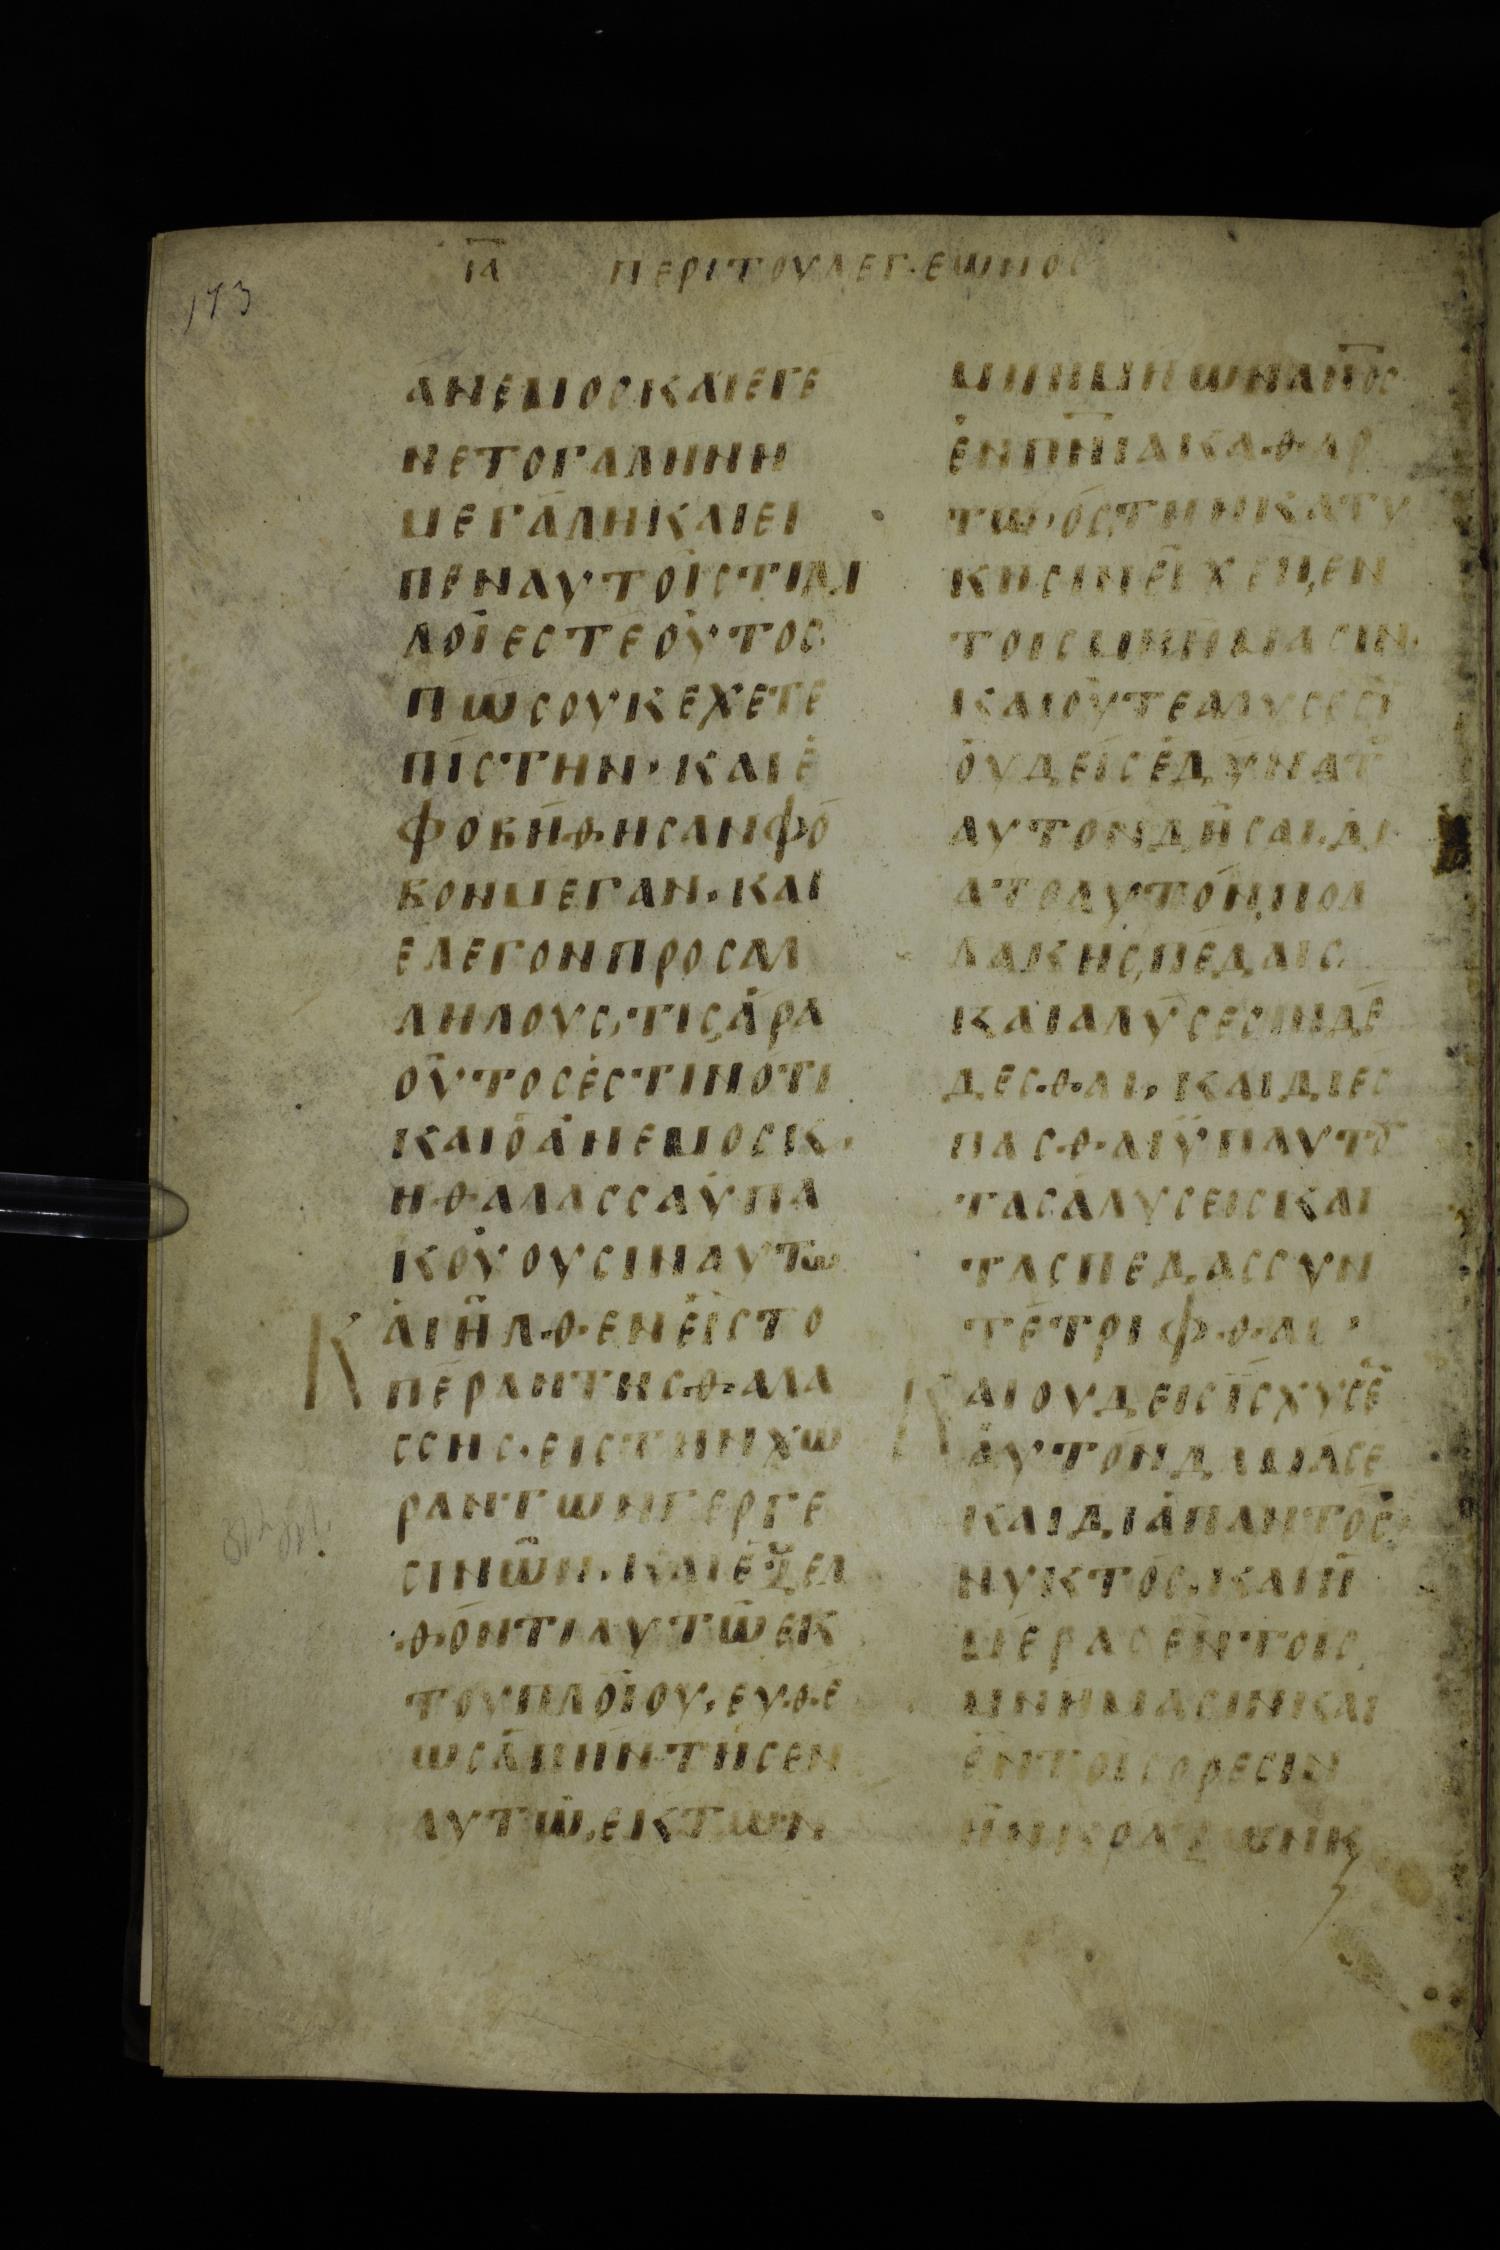 ΙΑ ΠΕΡΙΤΟΥΛΕΓ·ΕΩΝΟΣ
173
ΑΝΕΜΟΣΚΑΙΕΓΕ
ΝΕΤΟΓΑΛΗΝΗ
ΜΕΓΑΛΗΚΑΙΕΙ
ΠΕΝΑΥΤΟΙΣΤΙΔΙ
ΛΟΙΕΣΤΕΟΥΤΟΣ
ΠΩΣΟΥΚΕΧΕΤΕ
ΠΙΣΤΗΝ·ΚΑΙΕ
ΦΟΒΗΘΗΣΑΝΦΟ
ΒΟΝΜΕΓΑΝ·ΚΑΙ
ΕΛΕΓΟΝΠΡΟΣΑΛ
ΛΗΛΟΥΣ,ΤΙΣΑΡΑ
ΟΥΤΟΣΕΣΤΙΝΟΤΙ
ΚΑΙΟΑΝΕΜΟΣΚ,
ΗΘΑΛΑΣΣΑΥΠΑ
ΚΟΥΟΥΣΙΝΑΥΤω
ΚΑΙΗΛΘΕΝΕΙΣΤΟ
ΠΕΡΑΝΤΗΣΘΑΛΑ
ΣΣΗΣ·ΕΙΣΤΗΝΧΩ
ΡΑΝΤΩΝΓΕΡΓΕ
ΣΙΝΩΝ·ΚΑΙΕΞΕΛ
ΘΟΝΤΙΑΥΤΩΕΚ
ΤΟΥΠΛΟΙΟΥ,ΕΥΘΕ
ΩΣΑΠΗΝΤΗΣΕΝ
ΑΥΤΩ,ΕΚΤΩΝ
ΜΝΗΜΗΩΝΑΝΟΣ
ΕΝΠΝΙΑΚΑΘΑΡ
ΤΩ·ΟΣΤΗΝΚΑΤΥ
ΚΗΣΙΝΕΙΧΕΝ,ΕΝ
ΤΟΙΣΜΝΗΜΑΣΙΝ·
ΚΑΙΟΥΤΕΑΛΥΣΕΣΙ
ΟΥΔΕΙΣΕΔΥΝΑΤ
ΑΥΤΟΝΔΗΣΑΙ·ΔΙ
ΑΤΟΑΥΤΟΝ,ΠΟΛ
ΛΑΚΗΣ,ΠΕΔΑΙΣ
ΚΑΙΑΛΥΣΕΣΙΝΔΕ
ΔΕΣΘΑΙ,ΚΑΙΔΙΕΣ
ΠΑΣΘΑΙΫΠΑΥΤΟ
ΤΑΣΑΛΥΣΕΙΣΚΑΙ
ΤΑΣΠΕΔΑΣΣΥΝ
ΤΕΤΡΙΦΘΑΙ,
ΚΑΙΟΥΔΕΙΣΙΣΧΥΣΕ
ΑΥΤΟΝΔΑΜΑΣΕ
ΚΑΙΔΙΑΠΑΝΤΟΣ
ΝΥΚΤΟΣ·ΚΑΙΗ
ΜΕΡΑΣΕΝΤΟΙΣ
ΜΝΗΜΑΣΙΝΚΑΙ
ΕΝΤΟΙΣΟΡΕΣΙΝ
ΗΝΚΡΑΖΩΝΚ